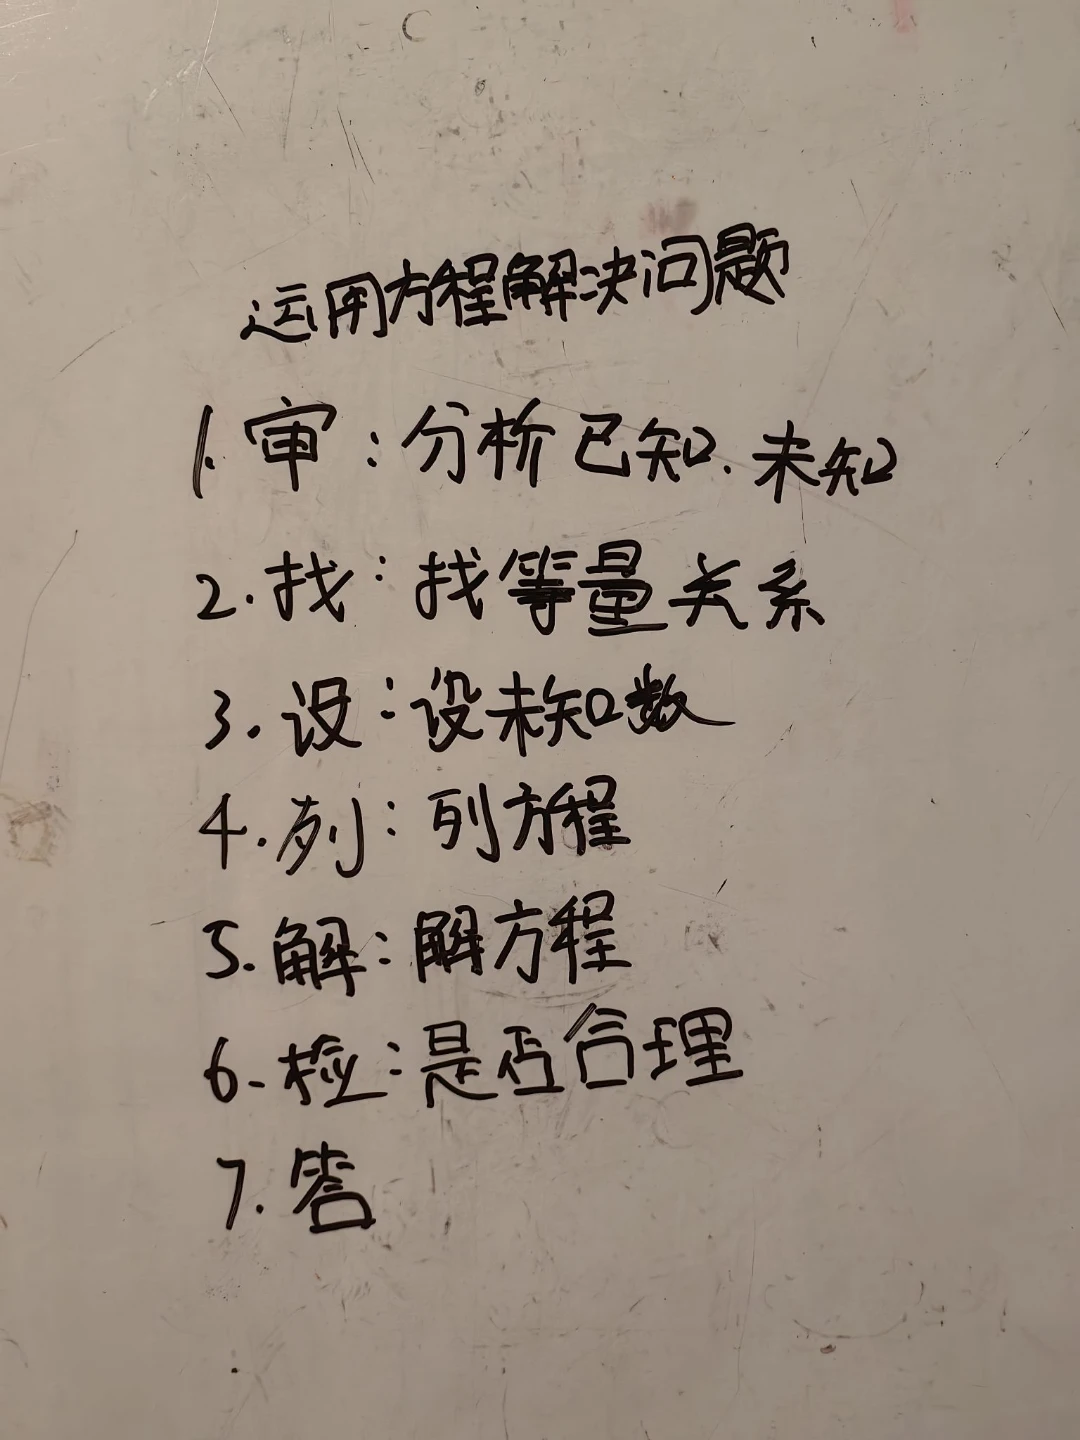 运用方程解决问题
1.审:分析已知.未知
2.找:找等量关系
3.设:设未知数
4.列:列方程
5.解:解方程
6.检:是否合理
7.答